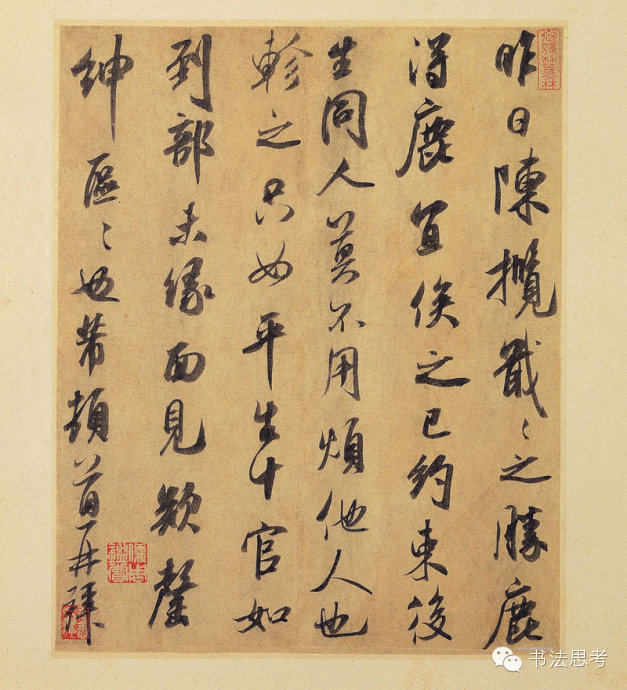 昨日陳攬戢〻之勝鹿
得鹿宜俟之已約束後
生同人莫不用煩他人也
軫之只如平生十官如
到部未緣面見欵罄
紳區〻也芾頓首再拜
书法思考